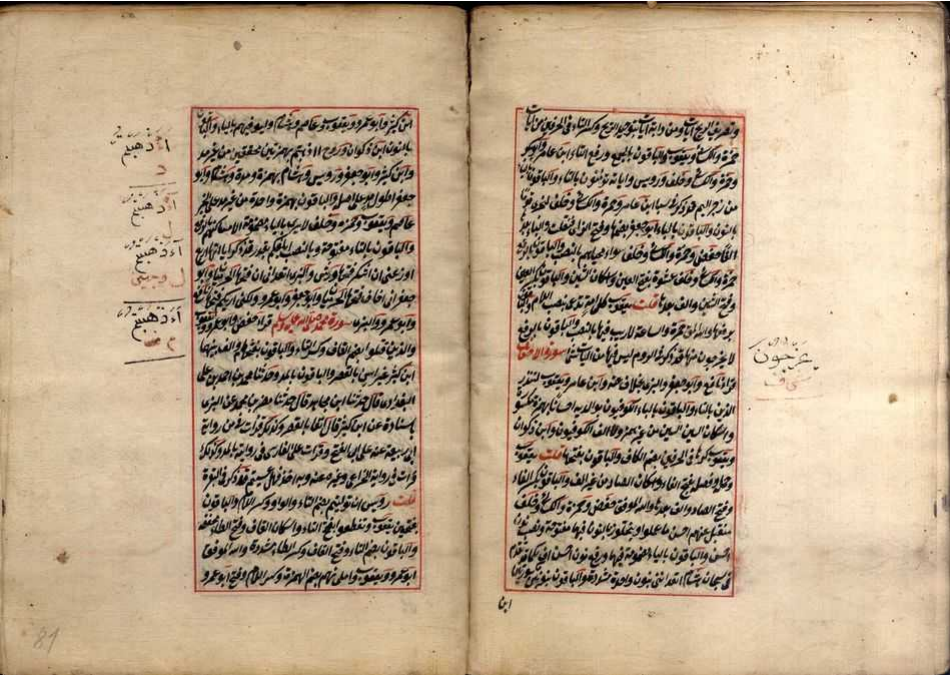 وتصريف الريح آيات ومن دابة آيات بتوحيد الريح وكسر التاء في الحرفين من آيات
حمزة والكسائي ويعقوب والباقون بالجمع ورفع التاء ابن عامر وابو بكر
وحمزة والكسائي وخلف ورويس واياته تؤمنون بالتاء والباقون بالياء
من رجز اليم قد ذكر في سبا ابن عامر وحمزة والكسائي وخلف لنجزي قوما
بالنون والباقون بالياء ابو جعفر بضمها وفتح الزاي
حفص وحمزة والكسائي وخلف سواء محياهم بالنصب والباقون بالرفع
حمزة والكسائي وخلف غشوة بفتح الغين واسكان الشين والباقون بكسر الغين
وفتح الشين والف بعدها قلت يعقوب كل امة تدعى بنصب اللام والباقون
برفعها والله اعلم حمزة والساعة لا ريب فيها بالنصب والباقون بالرفع
لا يخرجون منها قد ذكر في الروم ليس فيها من الياآت شيء سورة الاحقاف
قرا نافع وابو جعفر والبزي بخلاف عنه وابن عامر ويعقوب لتنذر
الذين بالتاء والباقون بالياء الكوفيون بوالديه احسانا بهمزة مكسورة
واسكان السين من غير همز ولا الف الكوفيون وابن ذكوان
ويعقوب كرها في الحرفين بضم الكاف والباقون بفتحها قلت يعقوب
وحمله وفصله بفتح الفاء واسكان الصاد من غير الف والباقون بكسر الفاء
وفتح الصاد والف بعدها والله الموفق حفص وحمزة والكسائي وخلف
نتقبل عنهم احسن ما عملوا ونتجاوز بالنون فيها مفتوحة ونصب نون
احسن والباقون بالياء مضمومة فيها ورفع نون احسن اف لكما قد ذكر
في سبحان هشام اتعدانني بنون واحدة مشددة والباقون بنونين مكسورتين
ابن
يخرجون
ابن كثير وابو عمرو ويعقوب وعاصم وهشام وليوفيهم بالياء والباقون
بالنون ابن ذكوان وروح أأذهبتم بهمزتين محققتين من غير مد
وابن كثير وابو جعفر ورويس وهشام بهمزة ومدة وهشام وابو
جعفر اطول مدا على اصله والباقون بهمزة واحدة من غير مد على الخبر
عاصم ويعقوب وحمزة وخلف لا يرى بالياء مضمومة الا مساكنهم بالرفع
والباقون بالتاء مفتوحة وبالنصب ابلغكم قد ذكر ياآتها اربع
اوزعني ان اشكر فتحها ورش والبزي اتعدانني ان فتحها الحرميان وابو
جعفر اني اخاف فتحها الحرميان وابو جعفر وابو عمرو ولكني اريكم فتحها نافع
وابو عمرو والبزي سورة محمد صلى الله عليه وسلم قرا حفص وابو عمرو ويعقوب
والذين قتلوا بضم القاف وكسر التاء والباقون بفتحهما والف بينهما
ابن كثير غير اسن بالقصر والباقون بالمد وحدثنا محمد بن احمد بن علي
البغدادي قال حدثنا ابن مجاهد قال حدثنا مضر بن محمد عن البزي
باسناده عن ابن كثير قال انفا بالقصر وبذلك قرات في رواية
ابي ربيعة عنه على ابي الفتح وقرات على الفارسي في روايته بالمد وكذلك
قرات في رواية الخزاعي وغيره عنه وبه اخذ فهل عسيتم قد ذكر في البقرة
قلت رويس ان توليتم بضم التاء والواو وكسر اللام والباقون
بفتحهن يعقوب وتقطعوا بفتح التاء واسكان القاف وفتح الطاء مخففة
والباقون بضم التاء وفتح القاف وكسر الطاء مشددة والله الموفق
ابو عمرو ويعقوب واملي لهم بضم الهمزة وكسر اللام وفتح ابو عمرو
أأذهبتم
أأذهبتم
أأذهبتم
أأذهبتم
81